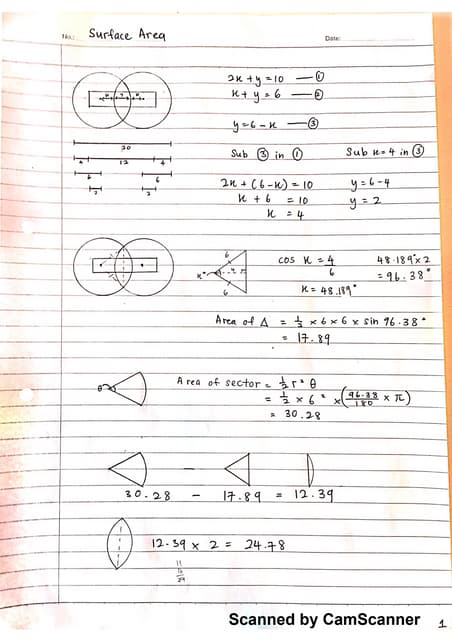 No.: Surface Area Date:
2x + y = 10 — ①
x + y = 6 — ②
y = 6 - x — ③
Sub ③ in ① Sub x = 4 in ③
2x + (6 - x) = 10 y = 6 - 4
x + 6 = 10 y = 2
x = 4
20
4 12 4
6 6
2 2
cos x = 4/6 48.189° x 2
= 96.38°
x = 48.189°
x° 6 4 6
Area of Δ = 1/2 x 6 x 6 x sin 96.38°
= 17.89
θ Area of sector = 1/2 r² θ
= 1/2 x 6² x (96.38/180 x π)
= 30.28
30.28 - 17.89 = 12.39
12.39 x 2 = 24.78
Scanned by CamScanner 1